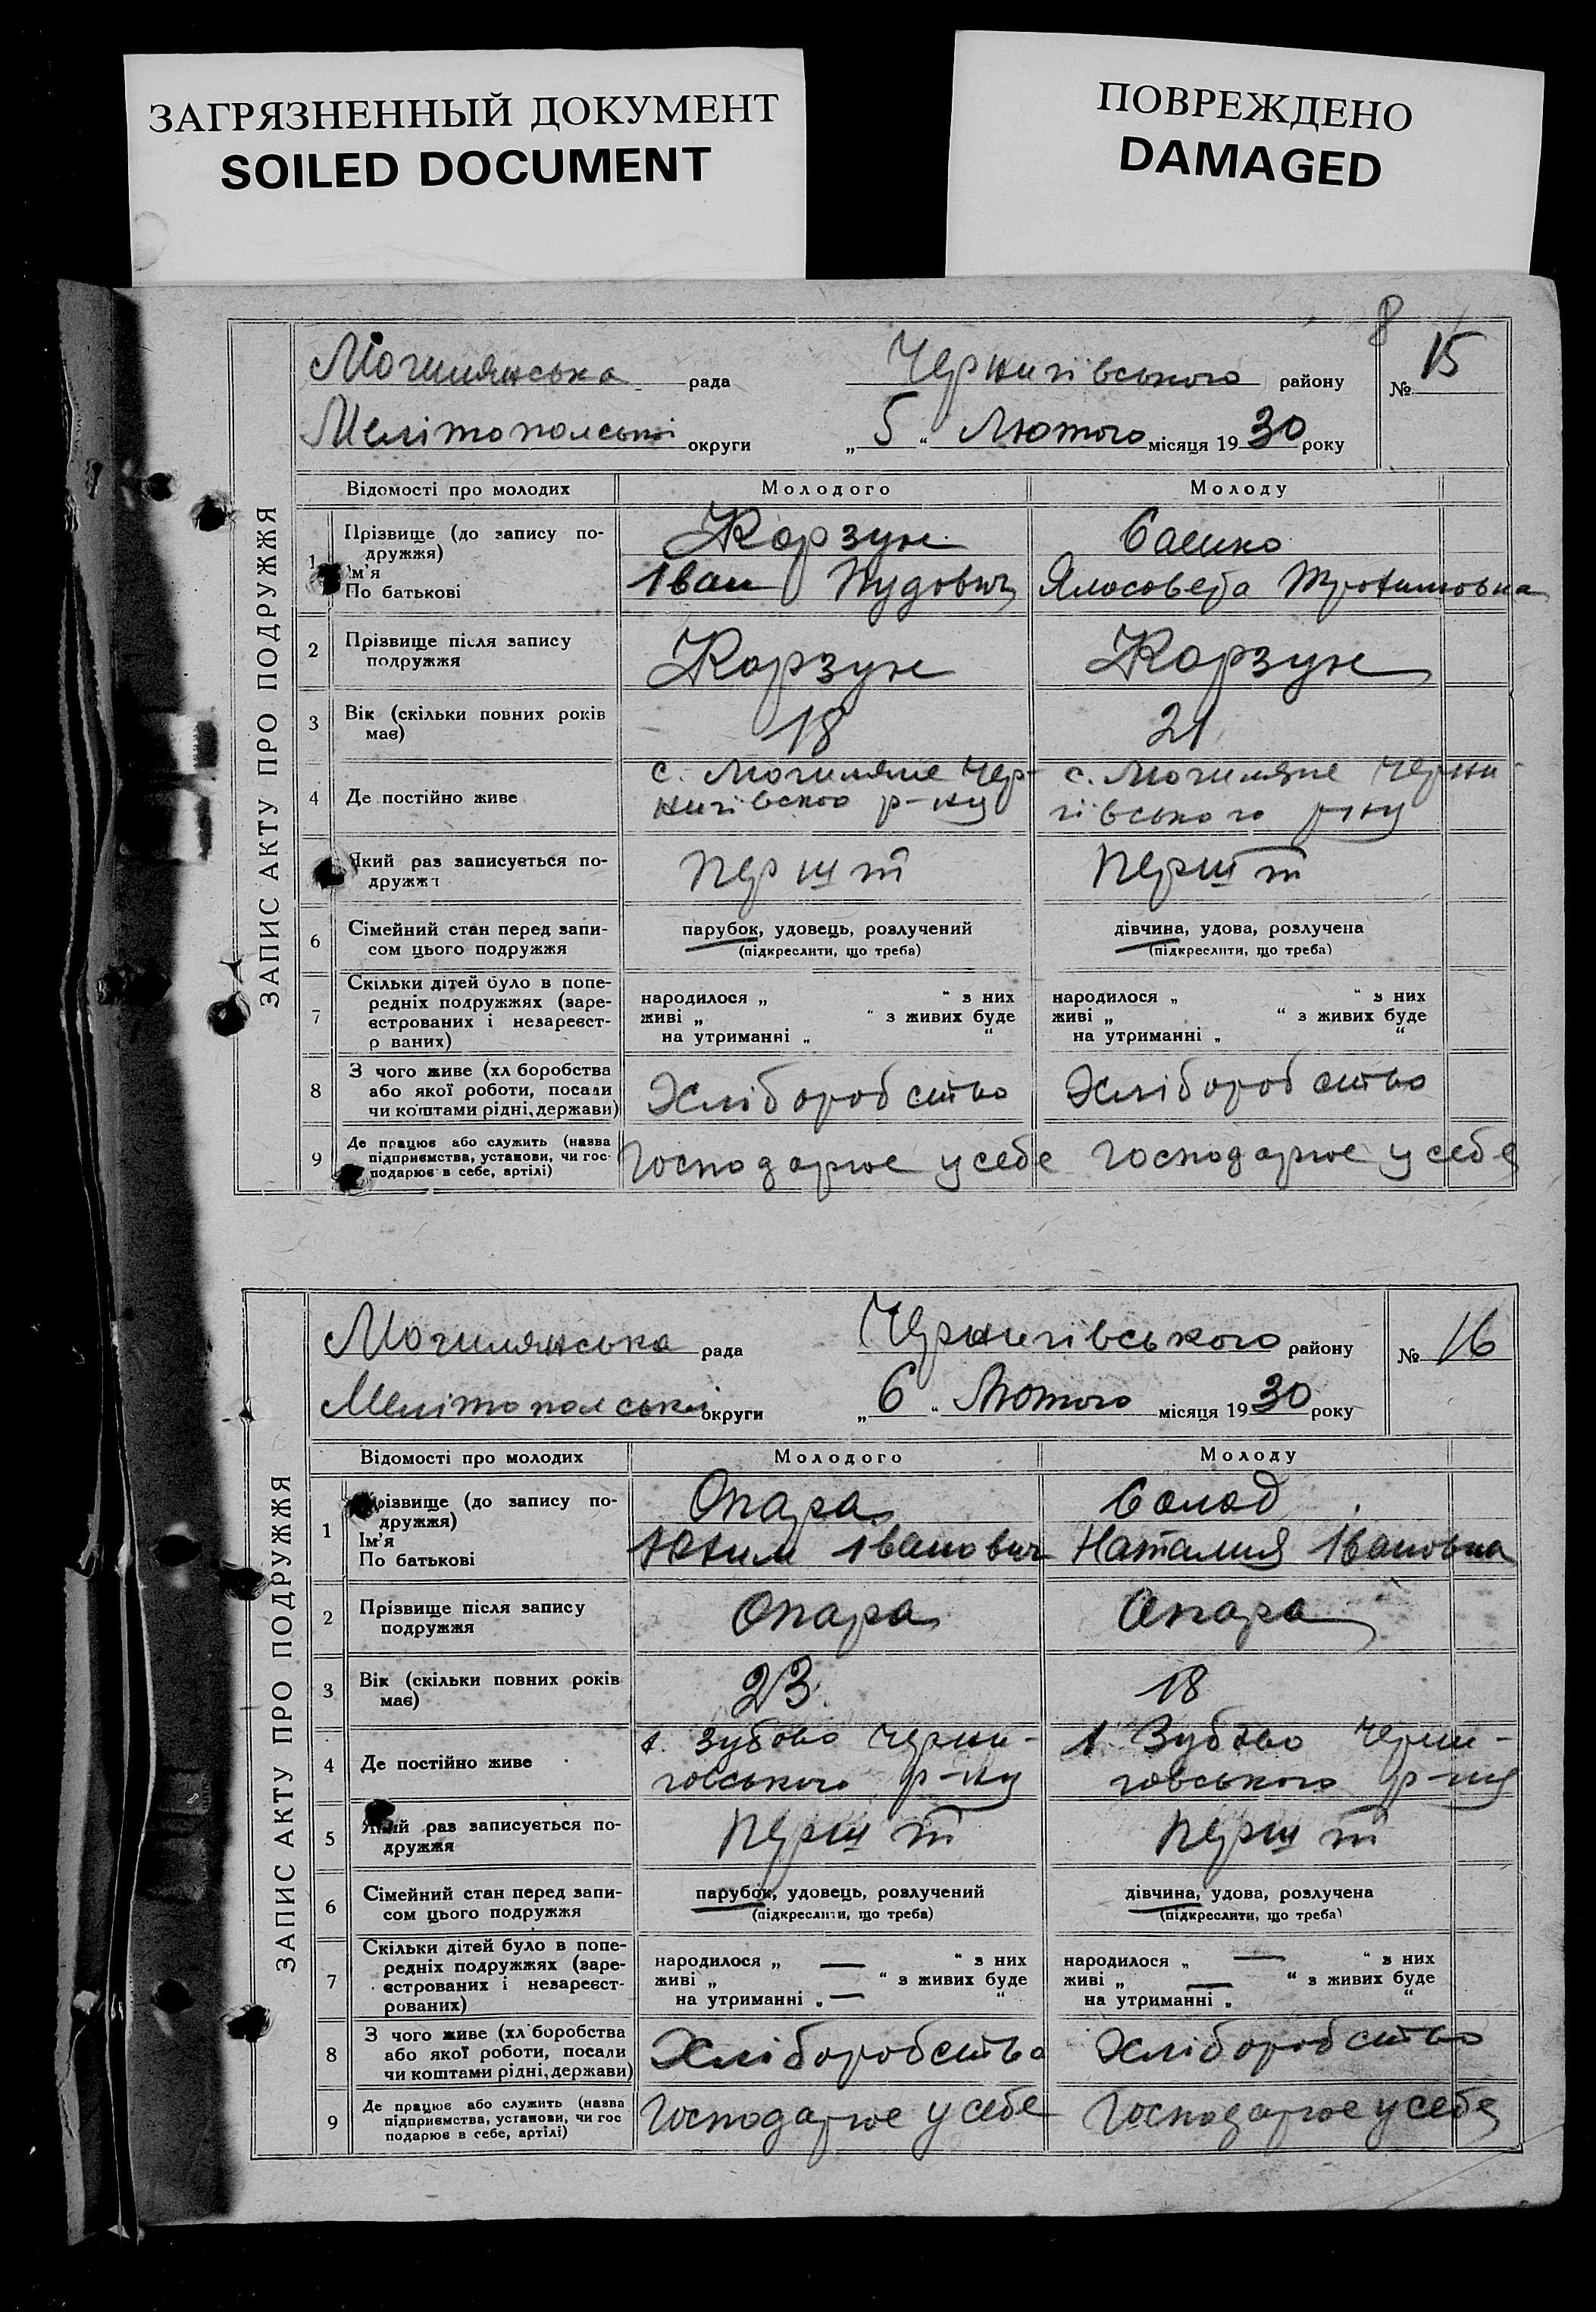 ЗАГРЯЗНЕННЫЙ ДОКУМЕНТ
SOILED DOCUMENT
ПОВРЕЖДЕНО
DAMAGED
8
ЗАПИС АКТУ ПРО ПОДРУЖЖЯ
Могилянська рада Чернигівського району № 15
Мелітопольської округи „5“ Лютого місяця 1930 року
Відомості про молодих Молодого Молоду
1 Прізвище (до запису по-
дружжя) Корзун
Ім'я
По батькові Іван
2 Прізвище після запису
подружжя Корзун Корзун
3 Вік (скільки повних років
має) 18 21
4 Де постійно живе с. Могиляне Чер- с. Могиляне Черни-
нигівского р-ну гівського р-ну
Який раз записується по-
дружжя перш ий перш ий
6 Сімейний стан перед запи-
сом цього подружжя
парубок, удовець, розлучений дівчина, удова, розлучена
(підкреслити, що треба) (підкреслити, що треба)
7 Скільки дітей було в попе-
редніх подружжях (заре-
єстрованих і незареєст-
р ваних)
народилося „ “ з них народилося „ “ з них
живі „ “ з живих буде живі „ “ з живих буде
на утриманні „ “ на утриманні „ “
8 З чого живе (хл боробства
або якої роботи, посади
чи коштами рідні, держави) Хлібороб ство Хлібороб ство
9 Де працює або служить (назва
підприємства, установи, чи гос-
подарює в себе, артілі) Господарює у себе Господарює у себе
ЗАПИС АКТУ ПРО ПОДРУЖЖЯ
Могилянська рада Чернигівського району № 16
Мелітопольської округи „6“ Лютого місяця 1930 року
Відомості про молодих Молодого Молоду
1 Прізвище (до запису по-
дружжя) Опара
Ім'я
По батькові Іванович Наталия Івановна
2 Прізвище після запису
подружжя Опара Опара
3 Вік (скільки повних років
має) 23 18
4 Де постійно живе Зубово Черни- Зубово Черни-
говського р-ну говського р-ну
5 Який раз записується по-
дружжя перш ий перш ий
6 Сімейний стан перед запи-
сом цього подружжя
парубок, удовець, розлучений дівчина, удова, розлучена
(підкреслити, що треба) (підкреслити, що треба)
7 Скільки дітей було в попе-
редніх подружжях (заре-
єстрованих і незареєст-
рованих)
народилося „ — “ з них народилося „ — “ з них
живі „ “ з живих буде живі „ — “ з живих буде
на утриманні „ — “ на утриманні „ “
8 З чого живе (хл боробства
або якої роботи, посади
чи коштами рідні, держави) Хліборобство Хліборобство
9 Де працює або служить (назва
підприємства, установи, чи гос
подарює в себе, артілі) Господарює у себе Господарює у себе